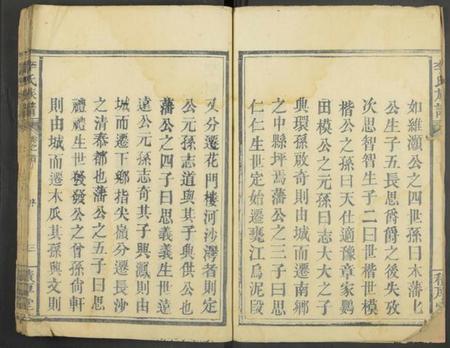 如維灝公之四世孫曰木藩七
公生子五長思爵爵之後失攷
次思智智生子二曰世楷世模
楷公之孫曰天仕適豫章家鄢
田模公之元孫曰志大大之子
與環孫敢奇則由城而遷南鄉
之中縣坪焉藩公之三子曰思
仁仁生世定始遷甕江為泥陂
又分遷花門樓河沙灣者則定
公元孫志道與其子興供公也
藩公之四子曰思義義生世遠
遠公元孫志奇其子興鳳則由
城而遷下鄉指尖嶺分遷長沙
之清泰都也藩公之五子曰思
禮禮生世發發公之曾孫尚軒
則由城而遷木瓜其孫與文則
李氏族譜
序
三